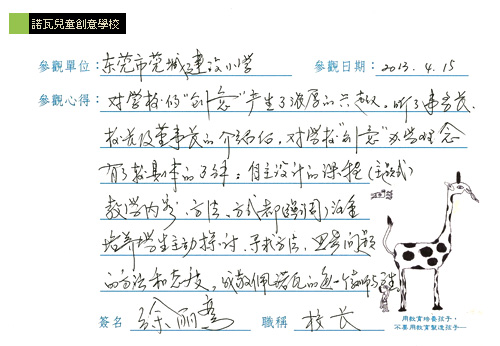 諾瓦兒童創意學校
參觀單位：东莞市莞城建设小学 參觀日期：2013.4.15
參觀心得：对学校的"创意"产生了浓厚的兴趣，听了董事长、
校长及董事长的介绍后，对学校"创意"办学理念
有了较具体的了解：自主设计的课程（主题式）
教学内容、方法、方式都强调注重
培养学生主动探讨、寻找方法，思考问题
的方法和态度，诺瓦的每一个
簽名 徐丽 職稱 校长
用教育培養孩子，
不要用教育製造孩子